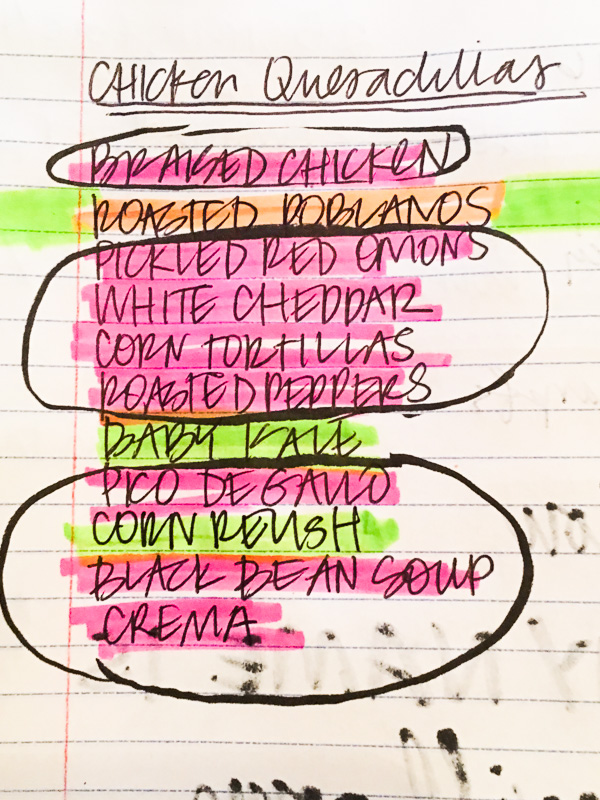 CHICKEN Quesadillas
BRAISED CHICKEN
ROASTED POBLANOS
PICKLED RED ONIONS
WHITE CHEDDAR
CORN TORTILLAS
ROASTED PEPPERS
BABY KALE
PICO DE GALLO
CORN RELISH
BLACK BEAN SOUP
CREMA